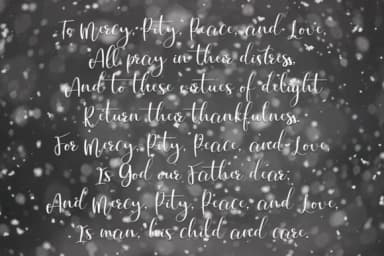 To Mercy, Pity, Peace, and Love,
All pray in their distress,
And to these virtues of delight
Return their thankfulness.
For Mercy, Pity, Peace, and Love,
Is God our Father dear;
And Mercy, Pity, Peace, and Love,
Is man, his child and care.